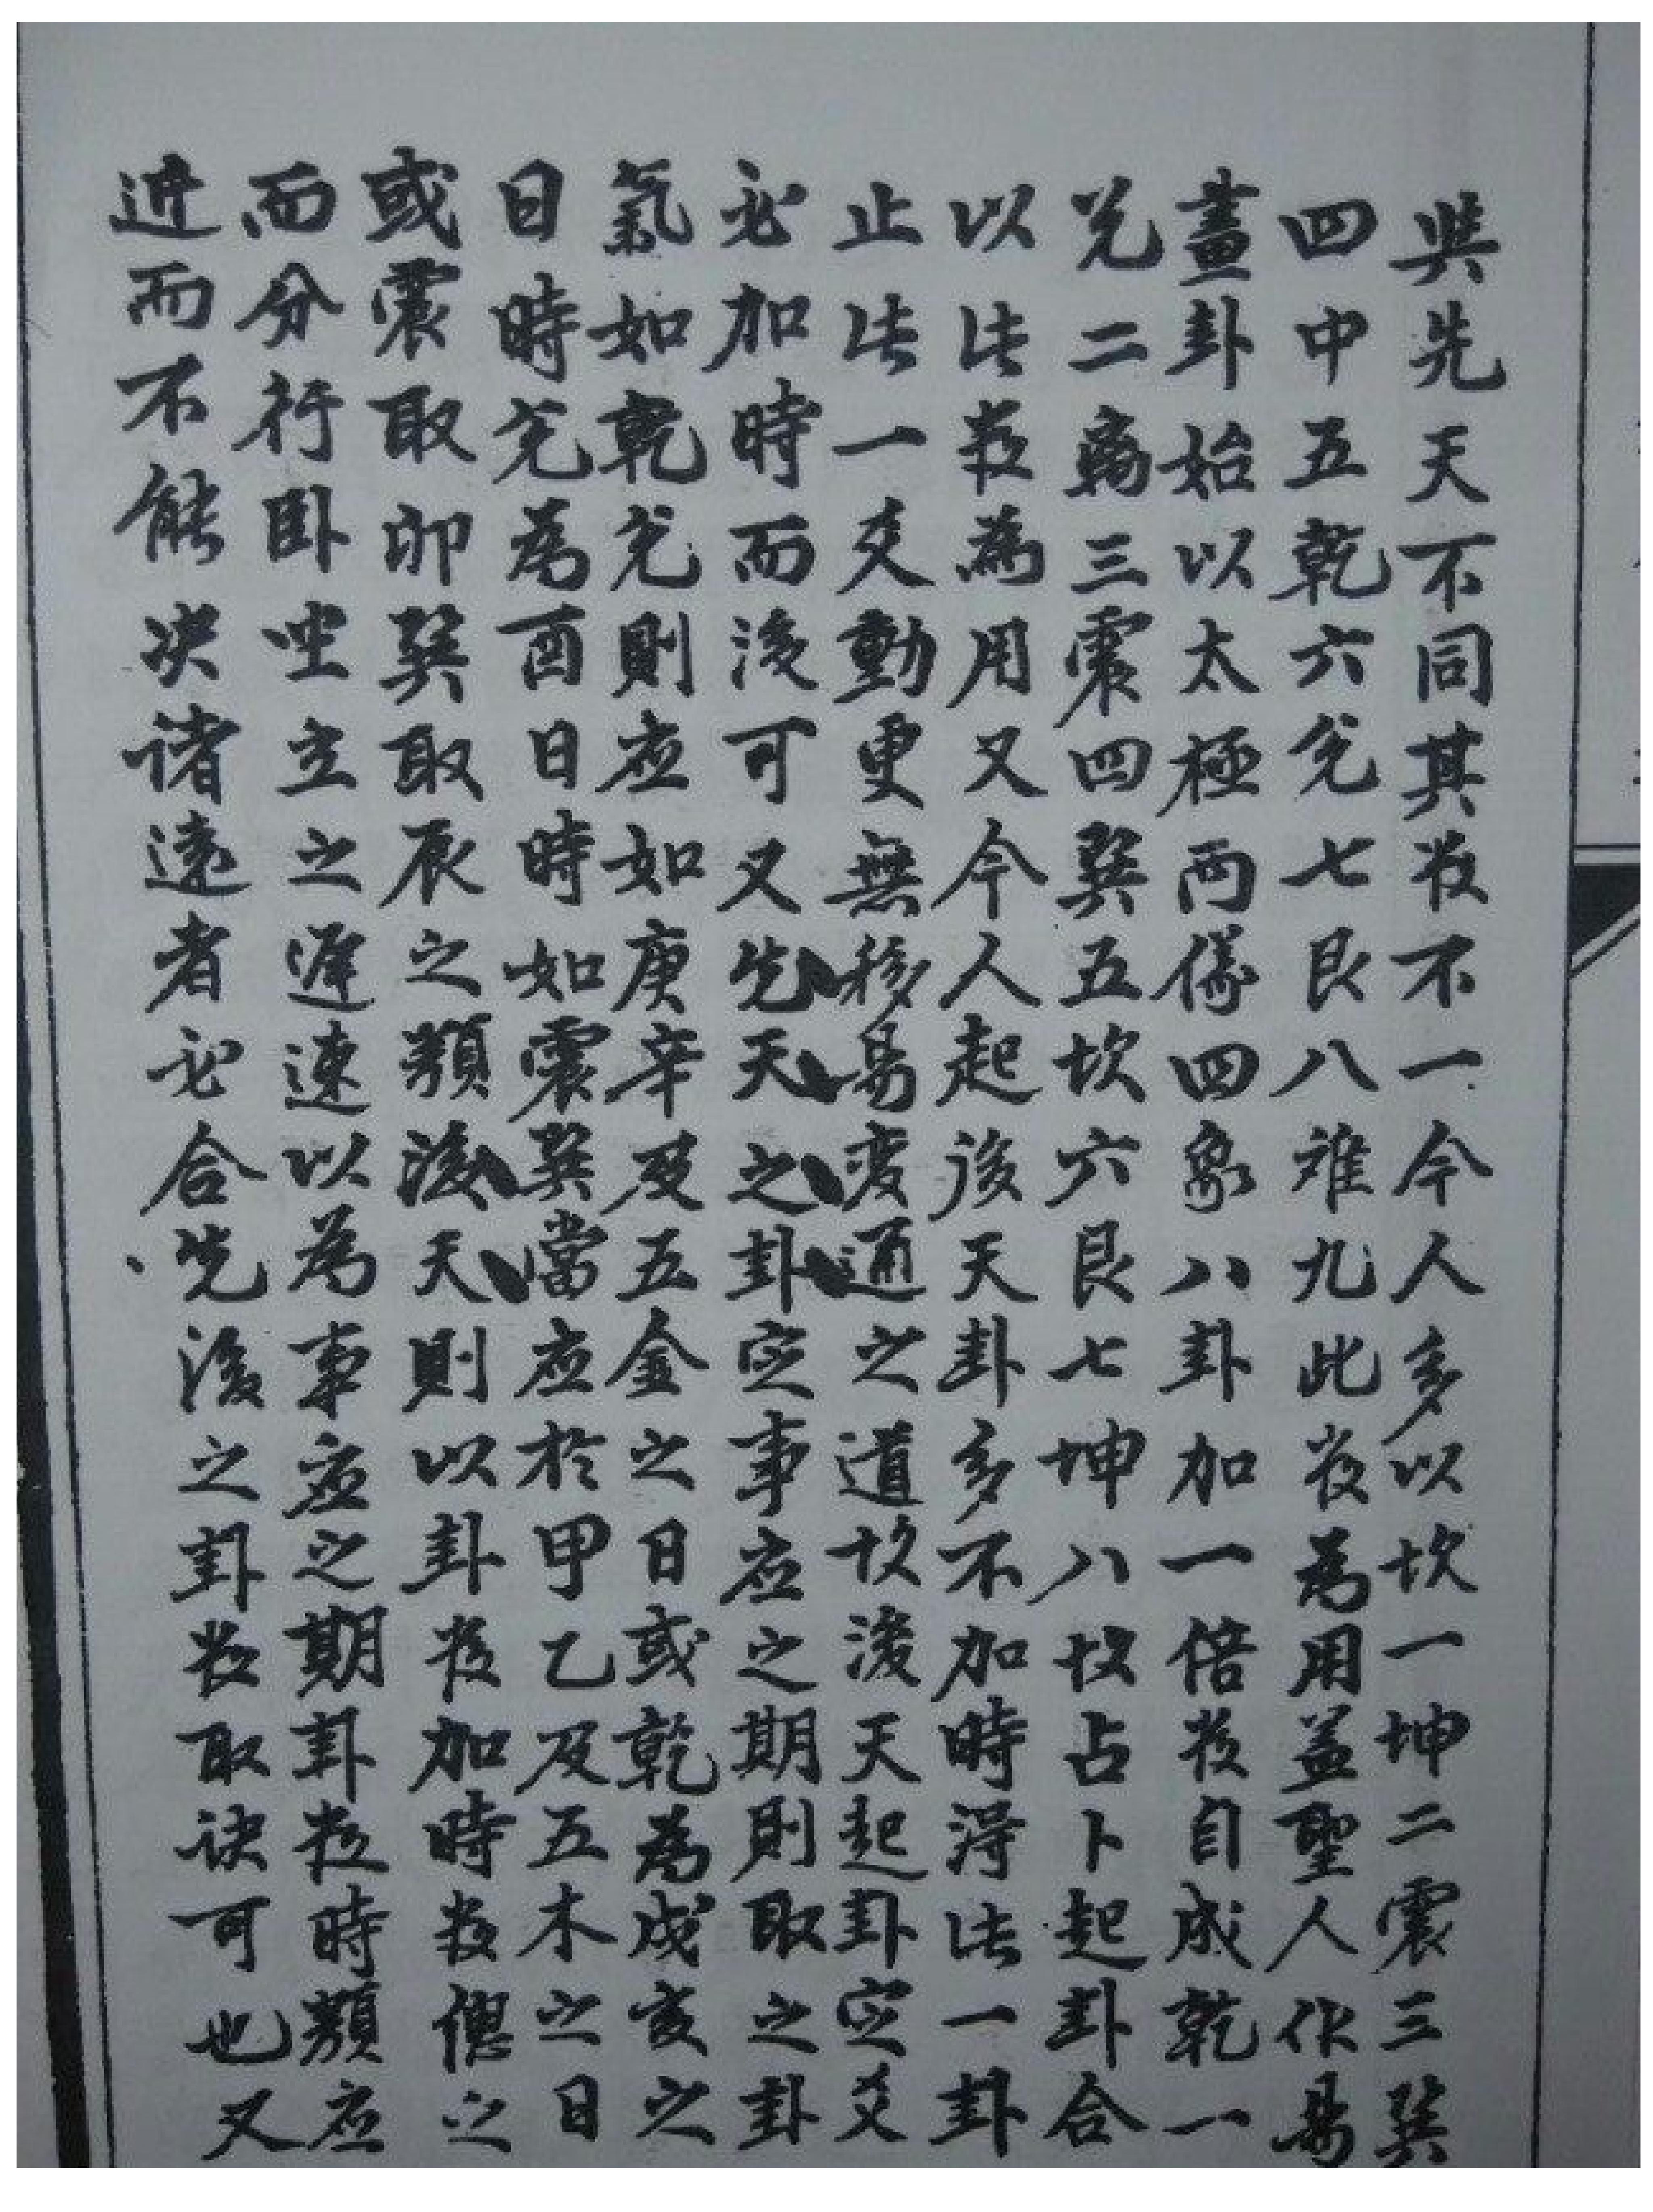 與先天不同其数不一今人多以坎一坤二震三巽
四中五乾六兌七艮八難九此数為用盖聖人作易
畫卦始以太極兩儀四象八卦加一倍数自成乾一
兌二离三震四巽五坎六艮七坤八故占卜起卦合
以此数為用又今人起後天卦多不加時得此一卦
止此一爻動更無移易变通之道故後天起卦定爻
必加時而後可又先天之卦定事应之期則取之卦
氣如乾兌則应如庚辛及五金之日或乾為戌亥之
日時兌為酉日時如震巽當应於甲乙及五木之日
或震取卯巽取辰之類後天則以卦数加時数緫之
而分行卧坐立之遲速以為事应之期卦数時類应
近而不能决诸遠者必合先後之卦数取决可也又